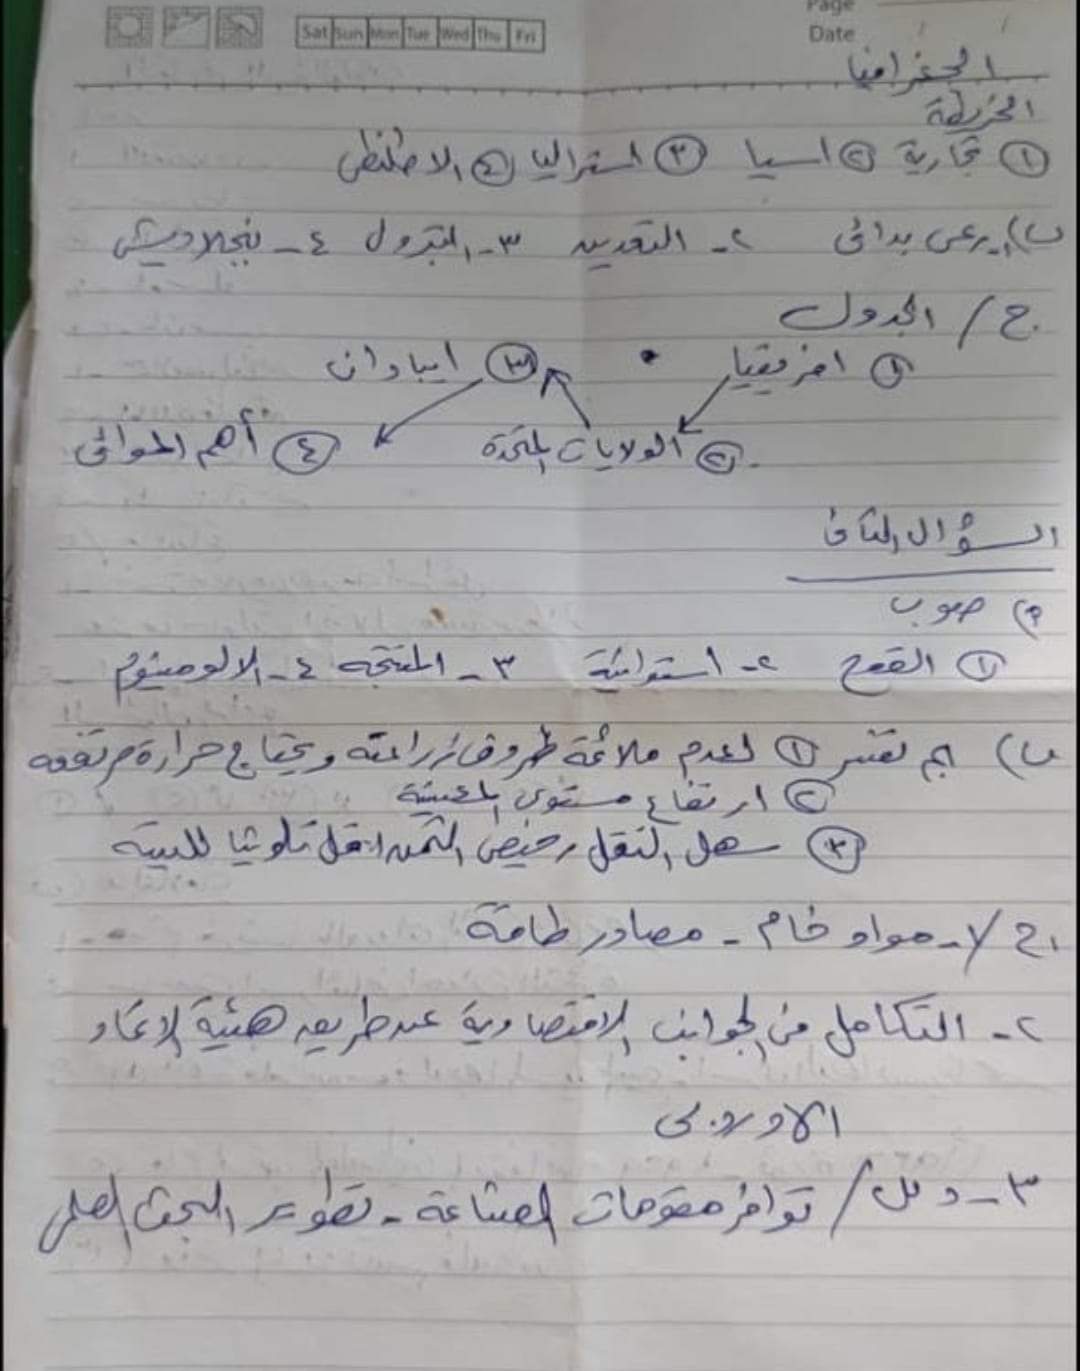 Page
Sat Sun Mon Tue Wed Thu Fri
Date / /
الجغرافيا
الخريطة
① تجارية ② اسيا ③ استراليا ④ الاطلنطى
ب) ١ـ رعى بدائى ٢ـ التعدين ٣ـ البترول ٤ـ بنجلاديش
ج / الجدول
① افريقيا ③ ايبادان
② الولايات المتحدة ④ أهم الموانى
السؤال الثانى
أ) صوب
① القمح ٢ـ استوائية ٣ـ المنتجه ٤ـ الالومنيوم
ب) بم تفسر ① لعدم ملائمة ظروف زراعته ويحتاج حرارة مرتفعه
② ارتفاع مستوى المعيشية
③ سهل النقل رخيص الثمن اقل تلوثا للبيئة
ج / ١ـ مواد خام ـ مصادر طاقة
٢ـ التكامل فى الجوانب الاقتصادية عن طريق هيئة الاتحاد
الاوروبى
٣ـ دلل / توافر مقومات الصناعة ـ تطوير البحث العلمى